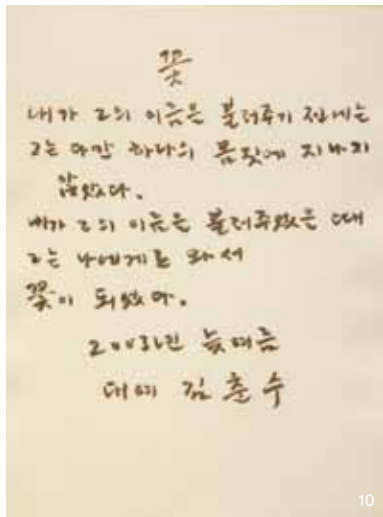 꽃
내가 그의 이름을 불러주기 전에는
그는 다만 하나의 몸짓에 지나지
않았다.
내가 그의 이름을 불러주었을 때
그는 나에게로 와서
꽃이 되었다.
2003년 늦여름
대여 김춘수
10